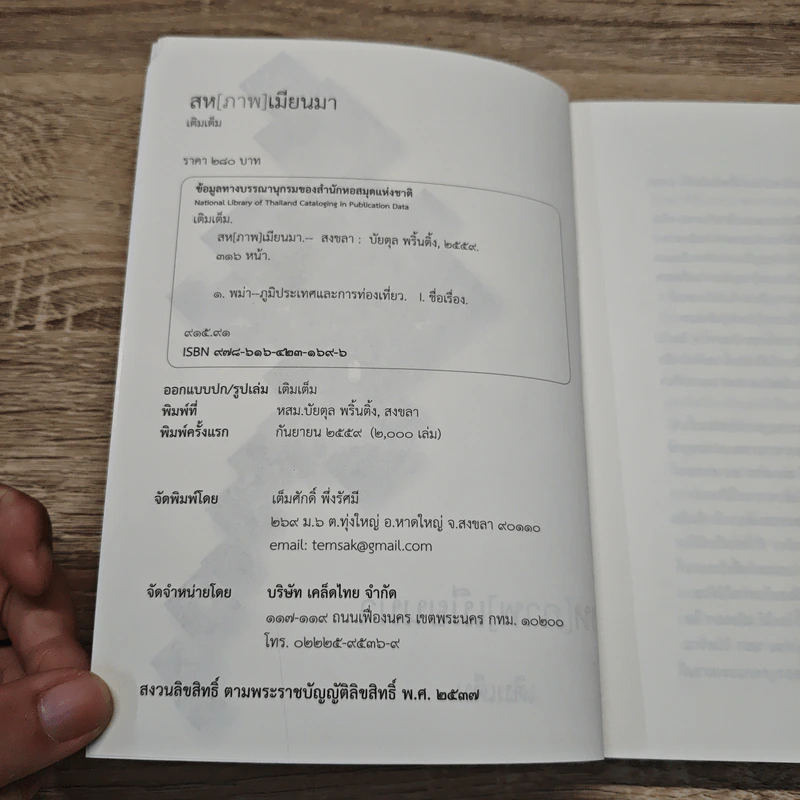 สห[ภาพ]เมียนมา
เติมเต็ม
ราคา ๒๘๐ บาท
ข้อมูลทางบรรณานุกรมของสำนักหอสมุดแห่งชาติ
National Library of Thailand Cataloging in Publication Data
เติมเต็ม.
สห[ภาพ]เมียนมา.-- สงขลา : บัยตุล พริ้นติ้ง, ๒๕๕๙.
๓๑๖ หน้า.
๑. พม่า--ภูมิประเทศและการท่องเที่ยว. I. ชื่อเรื่อง.
๙๑๕.๙๑
ISBN ๙๗๘-๖๑๖-๔๒๓-๑๖๙-๖
ออกแบบปก/รูปเล่ม เติมเต็ม
พิมพ์ที่ หสม.บัยตุล พริ้นติ้ง, สงขลา
พิมพ์ครั้งแรก กันยายน ๒๕๕๙ (๒,๐๐๐ เล่ม)
จัดพิมพ์โดย เต็มศักดิ์ พึ่งรัศมี
๒๖๙ ม.๖ ต.ทุ่งใหญ่ อ.หาดใหญ่ จ.สงขลา ๙๐๑๑๐
email: temsak@gmail.com
จัดจำหน่ายโดย บริษัท เคล็ดไทย จำกัด
๑๑๗-๑๑๙ ถนนเฟื่องนคร เขตพระนคร กทม. ๑๐๒๐๐
โทร. ๐๒๒๒๕-๙๕๓๖-๙
สงวนลิขสิทธิ์ ตามพระราชบัญญัติลิขสิทธิ์ พ.ศ. ๒๕๓๗